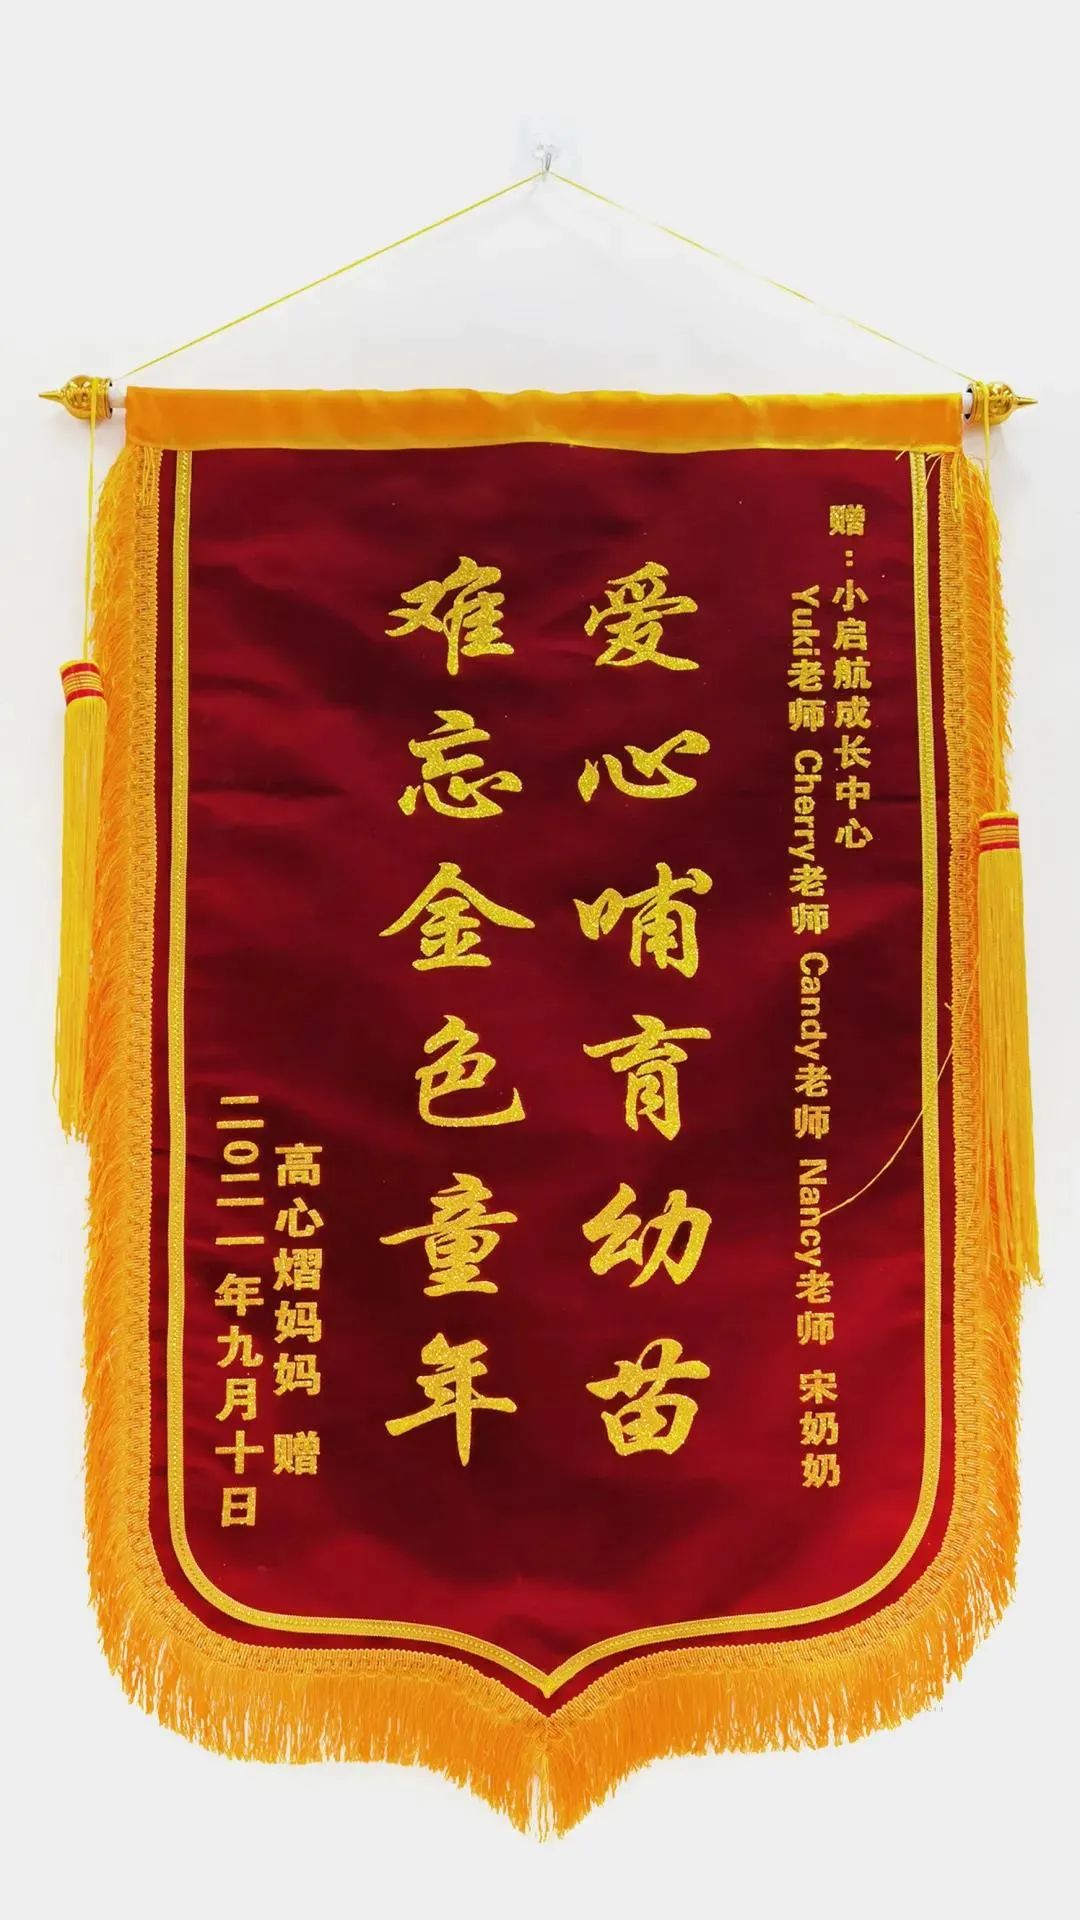 赠：小启航成长中心
Yuki老师 Cherry老师 Candy老师 Nancy老师 宋奶奶
爱心哺育幼苗
难忘金色童年
高心熠妈妈 赠
二〇二一年九月十日